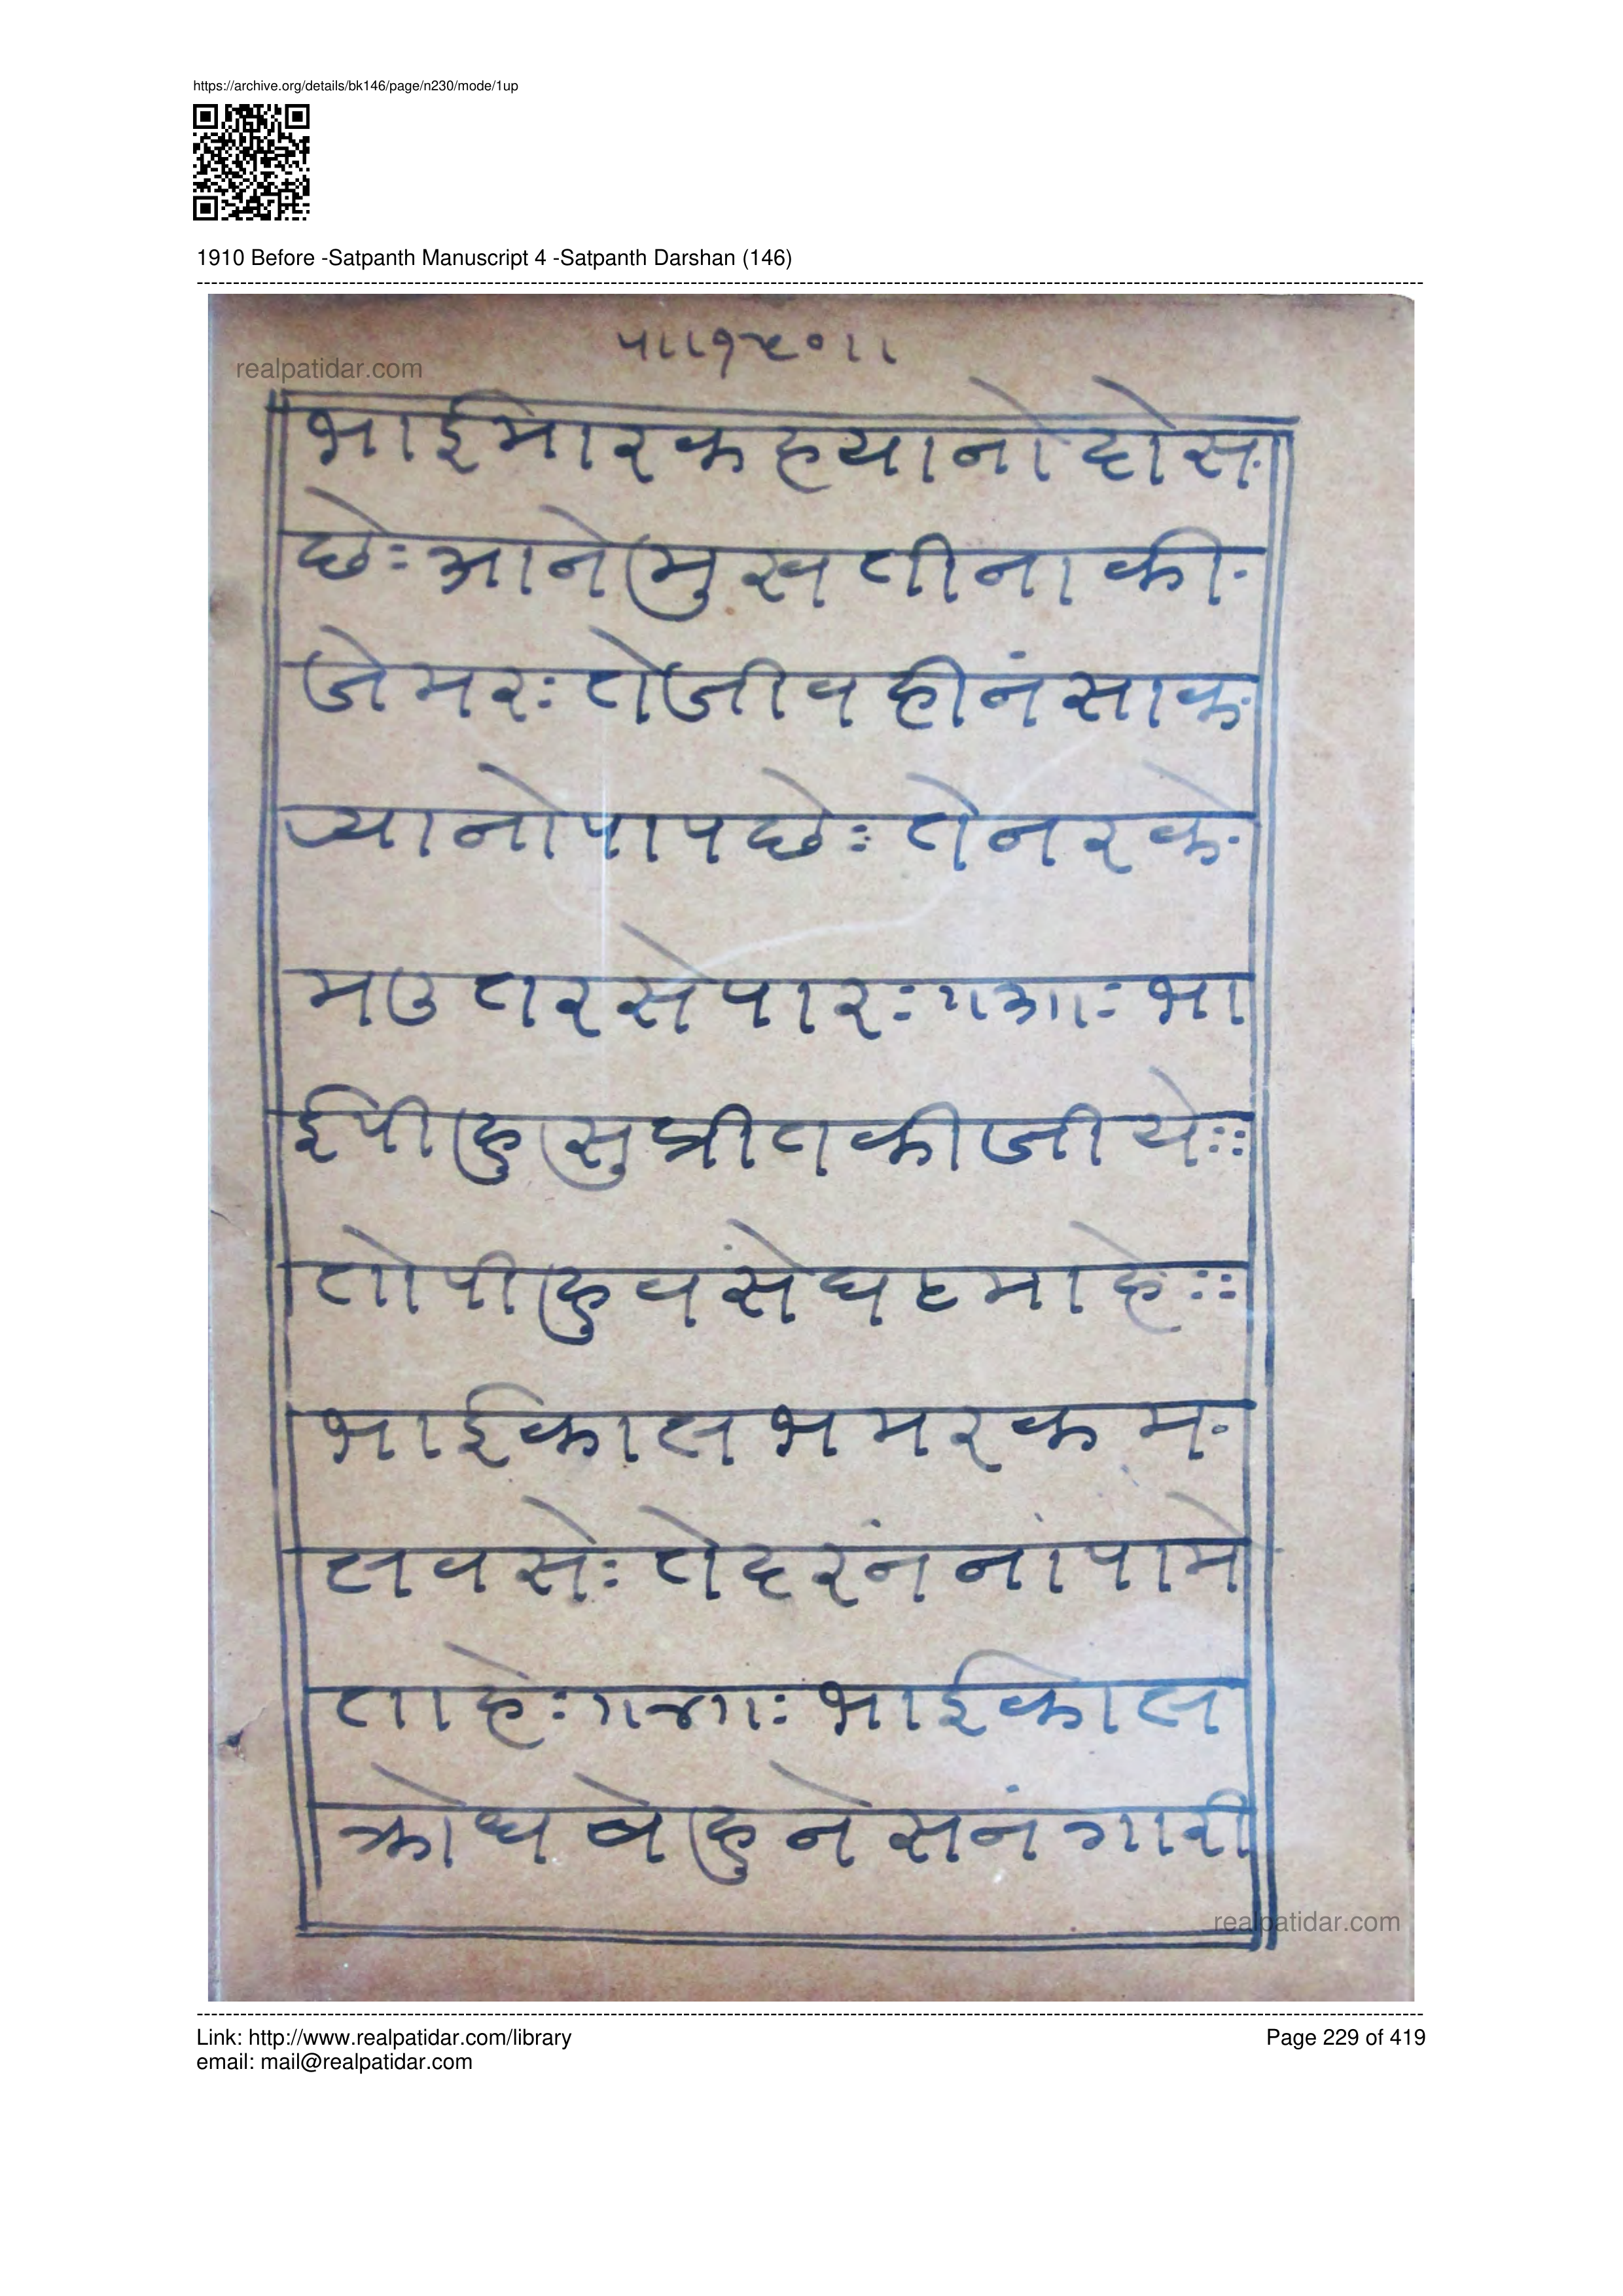 https://archive.org/details/bk146/page/n230/mode/1up
1910 Before -Satpanth Manuscript 4 -Satpanth Darshan (146)
realpatidar.com
भाईमारकहयानोदोस
छेः आनेमुखतीनाकी
जेमरः तेजीवहीनंसाक
यानोपापछेः तेनरके
मउतरसेपारः ગ૩ાાः भा
ईपीहुसुप्रीतकीजीयेः
तोपीहुवसेघटमाहेः
भाईकालभमरकम
लवसेः तेहरनंनांपामे
ताहेः ગ૪ાાः भाईकाल
क्रोधबेहुनेसनंगारी
realpatidar.com
Link: http://www.realpatidar.com/library
Page 229 of 419
email: mail@realpatidar.com